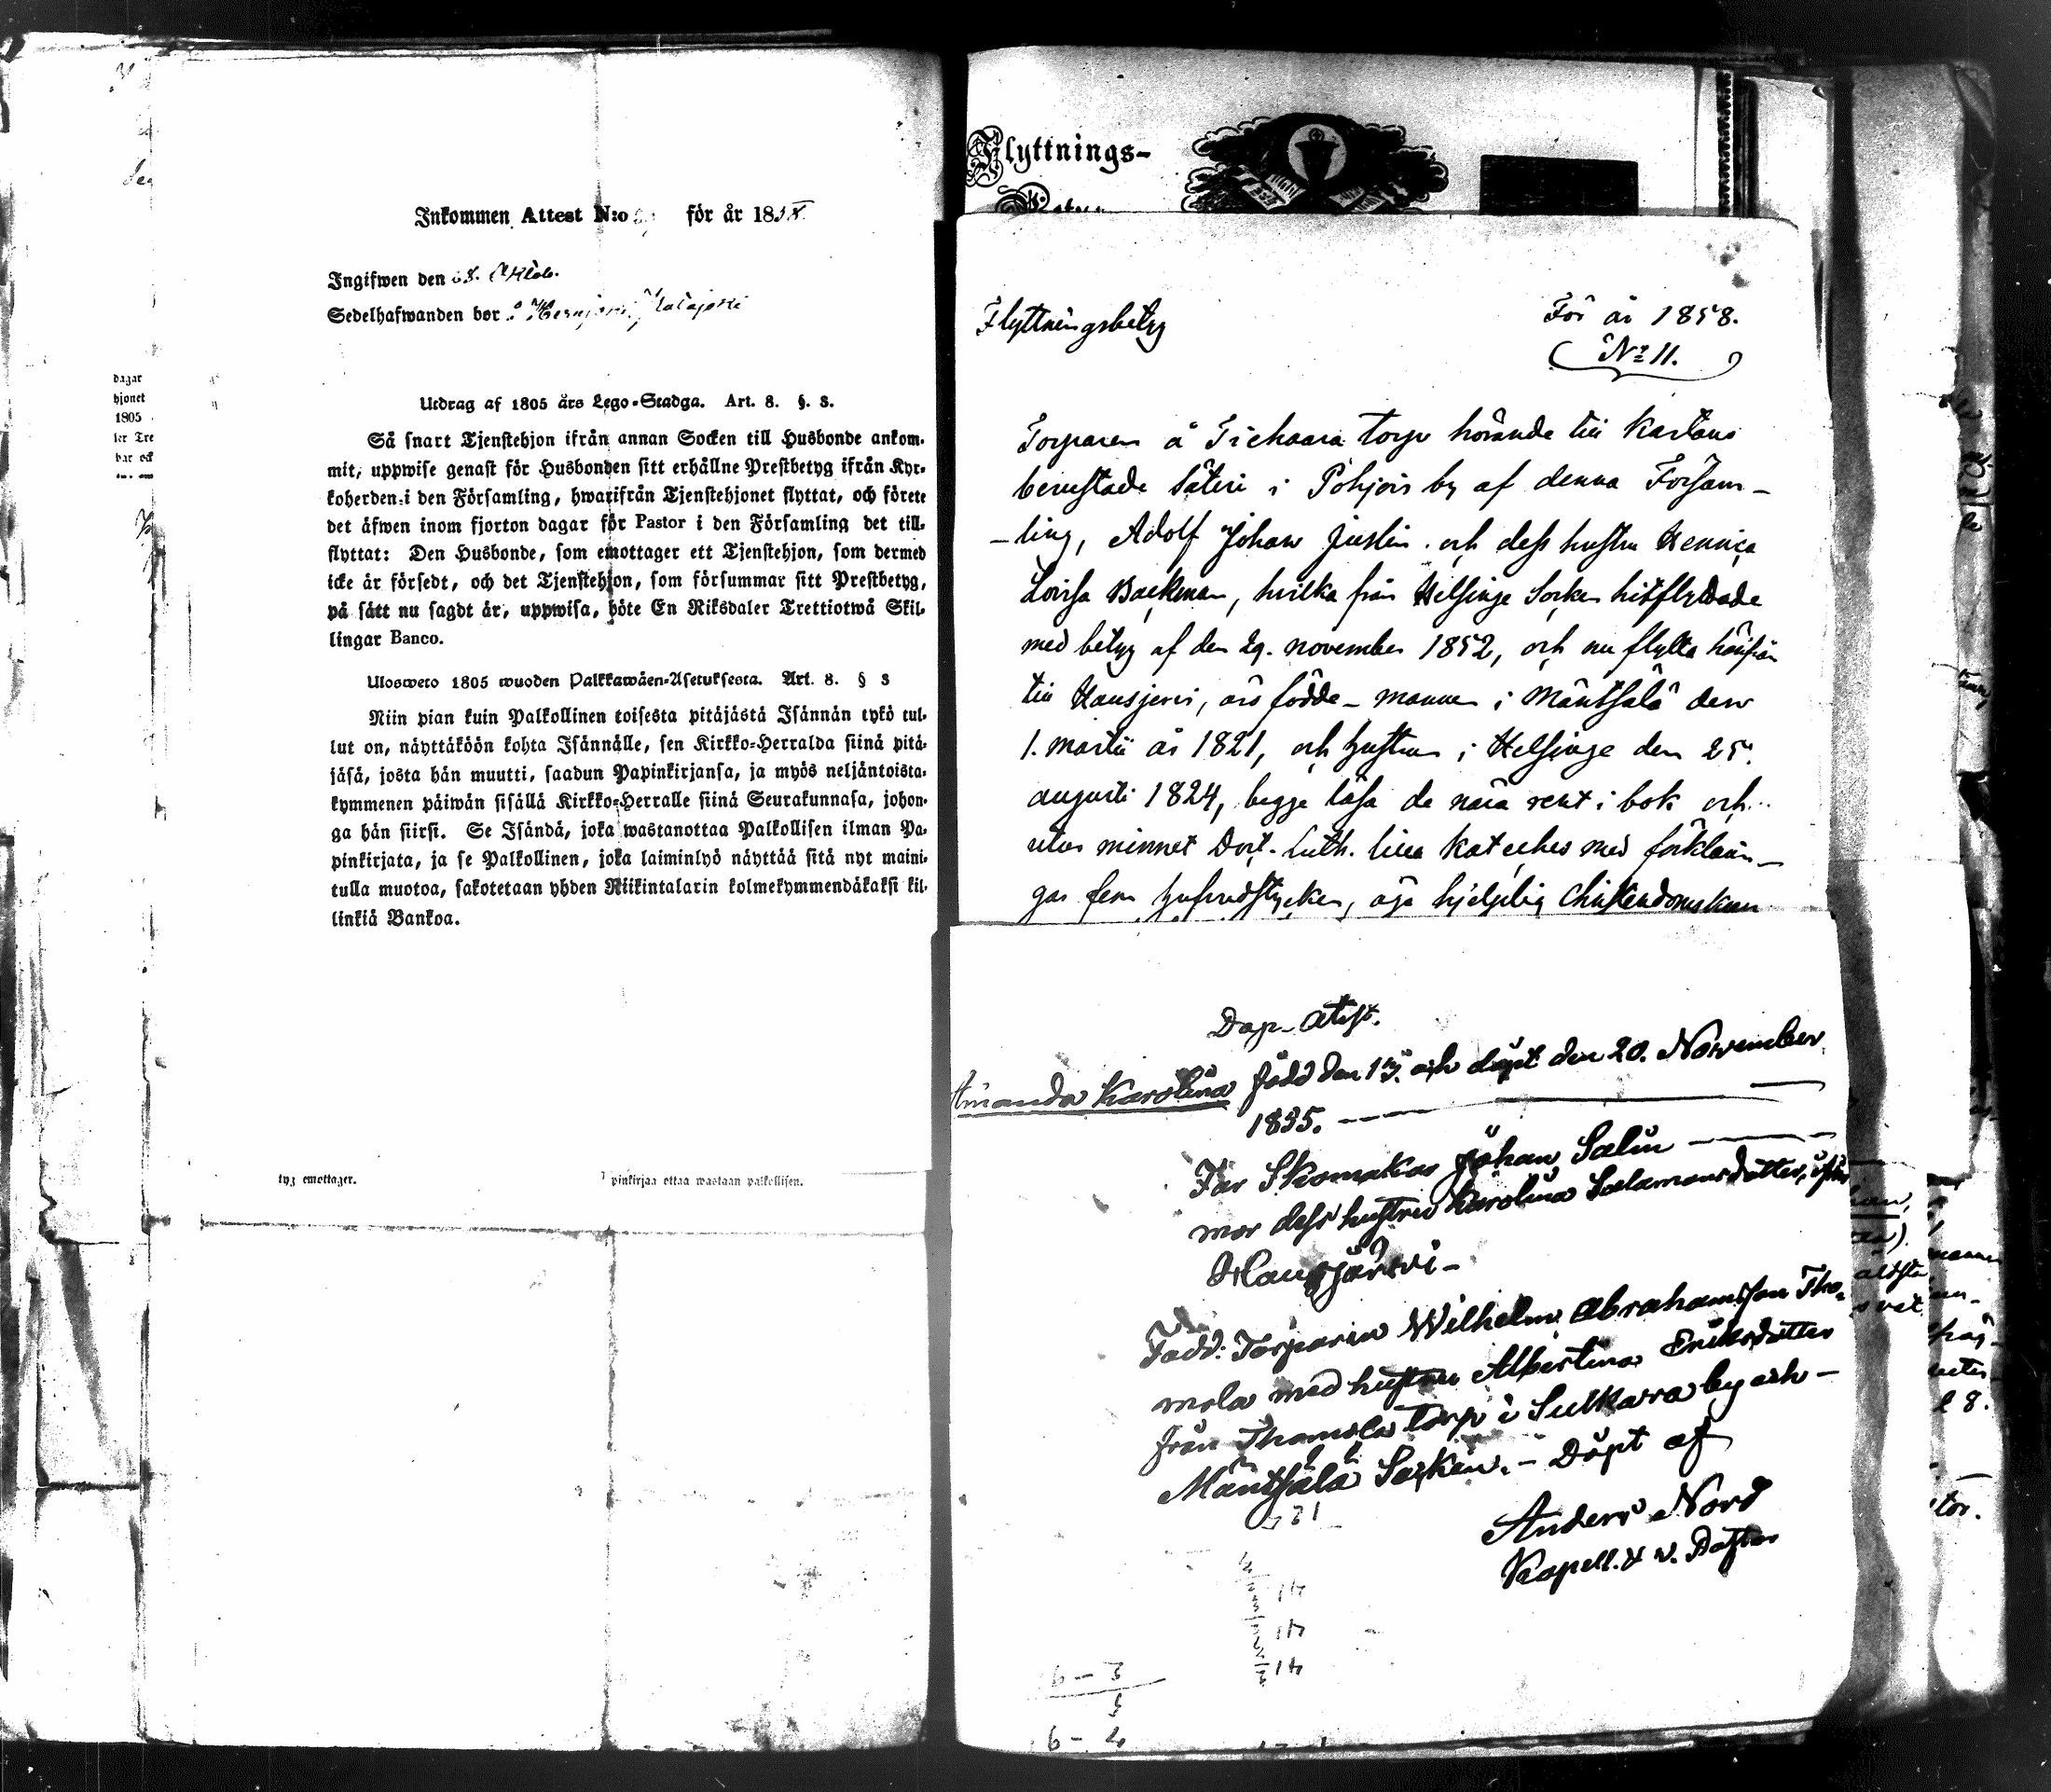 Inkommen Attest N:o för år 1858
Ingifwen den 28. Oktob.
Sedelhafwanden bor i
Utdrag af 1805 års Lego-Stadga. Art. 8. §. 3.
Så snart Tjenstehjon ifrån annan Socken till Husbonde ankom-
mit, uppwise genast för Husbonden sitt erhållne Prestbetyg ifrån Kyr-
koherden i den Församling, hwarifrån Tjenstehjonet flyttat, och förete
det äfwen inom fjorton dagar för Pastor i den Församling det till-
flyttat: Den Husbonde, som emottager ett Tjenstehjon, som dermed
icke är försedt, och det Tjenstehjon, som försummar sitt Prestbetyg,
på sätt nu sagdt är, uppwisa, böte En Riksdaler Trettiotwå Skil-
lingar Banco.
Ulosweto 1805 wuoden Palkkawäen-Asetuksesta. Art. 8. § 3
Niin pian kuin Palkollinen toisesta pitäjästä Isännän tykö tul-
lut on, näyttäköön kohta Isännälle, sen Kirkko-Herralda siinä pitä-
jäsä, josta hän muutti, saadun Papinkirjansa, ja myös neljäntoista-
kymmenen päiwän sisällä Kirkko-Herralle siinä Seurakunnasa, johon-
ga hän siirsi. Se Isändä, joka wastanottaa Palkollisen ilman Pa-
pinkirjata, ja se Palkollinen, joka laiminlyö näyttää sitä nyt maini-
tulla muotoa, sakotetaan yhden Riikintalarin kolmekymmendäkaksi kil-
linkiä Bankoa.
tyg emottager.
pinkirjaa ottaa wastaan palkollisen.
dagar
hjonet
1805
ler Tre
bar och
Flyttnings-
Flyttningsbetyg
För år 1858.
No 11.
Torparen å torp hörande till Kartano
berustade Säteri i Pohjois by af denna Försam-
-ling, Adolf Johan Juslin och dess hustru Hennica
Lovisa Backman, hvilka från Helsinge Socken hitflyttade
med betyg af den 29. november 1852, och nu flytta härifrån
till Hausjervi, äro födde - mannen i Mäntsälä den
1. martii år 1821, och hustrun i Helsinge den 25.
augusti 1824, begge läsa de nära rent i bok och
utur minnet Doct. Luth. lilla Kateches med förklarin-
gar fem hufvudstycken, äga hjelplig Christendomskun
Dop-Attest.
Amanda Karolina född den 13. och döpt den 20. November
1835.
Far Skomakar Johan Salin
mor dess hustru Karolina Salamonsdotter, ifrån
Hausjärvi-
Fadd: Torparen Wilhelm Abrahamsson Tho-
mola med hustru Albertina Eriksdotter
från Thomola torp i Sulkava by och -
Mäntsälä Socken. - Döpt af
Anders Nord
Kapell. & v. Pastor